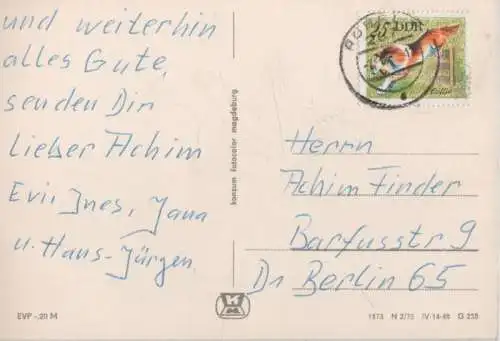 und weiterhin
alles Gute,
senden Dir
lieber Achim
Evi, Ines, Jana
u. Hans-Jürgen
EVP -,20 M
konsum fotocolor magdeburg
25 DDR
Collie
Herrn
Achim Finder
Barfusstr. 9
Dr Berlin 65
1573 N 2/75 IV-14-48 G 235